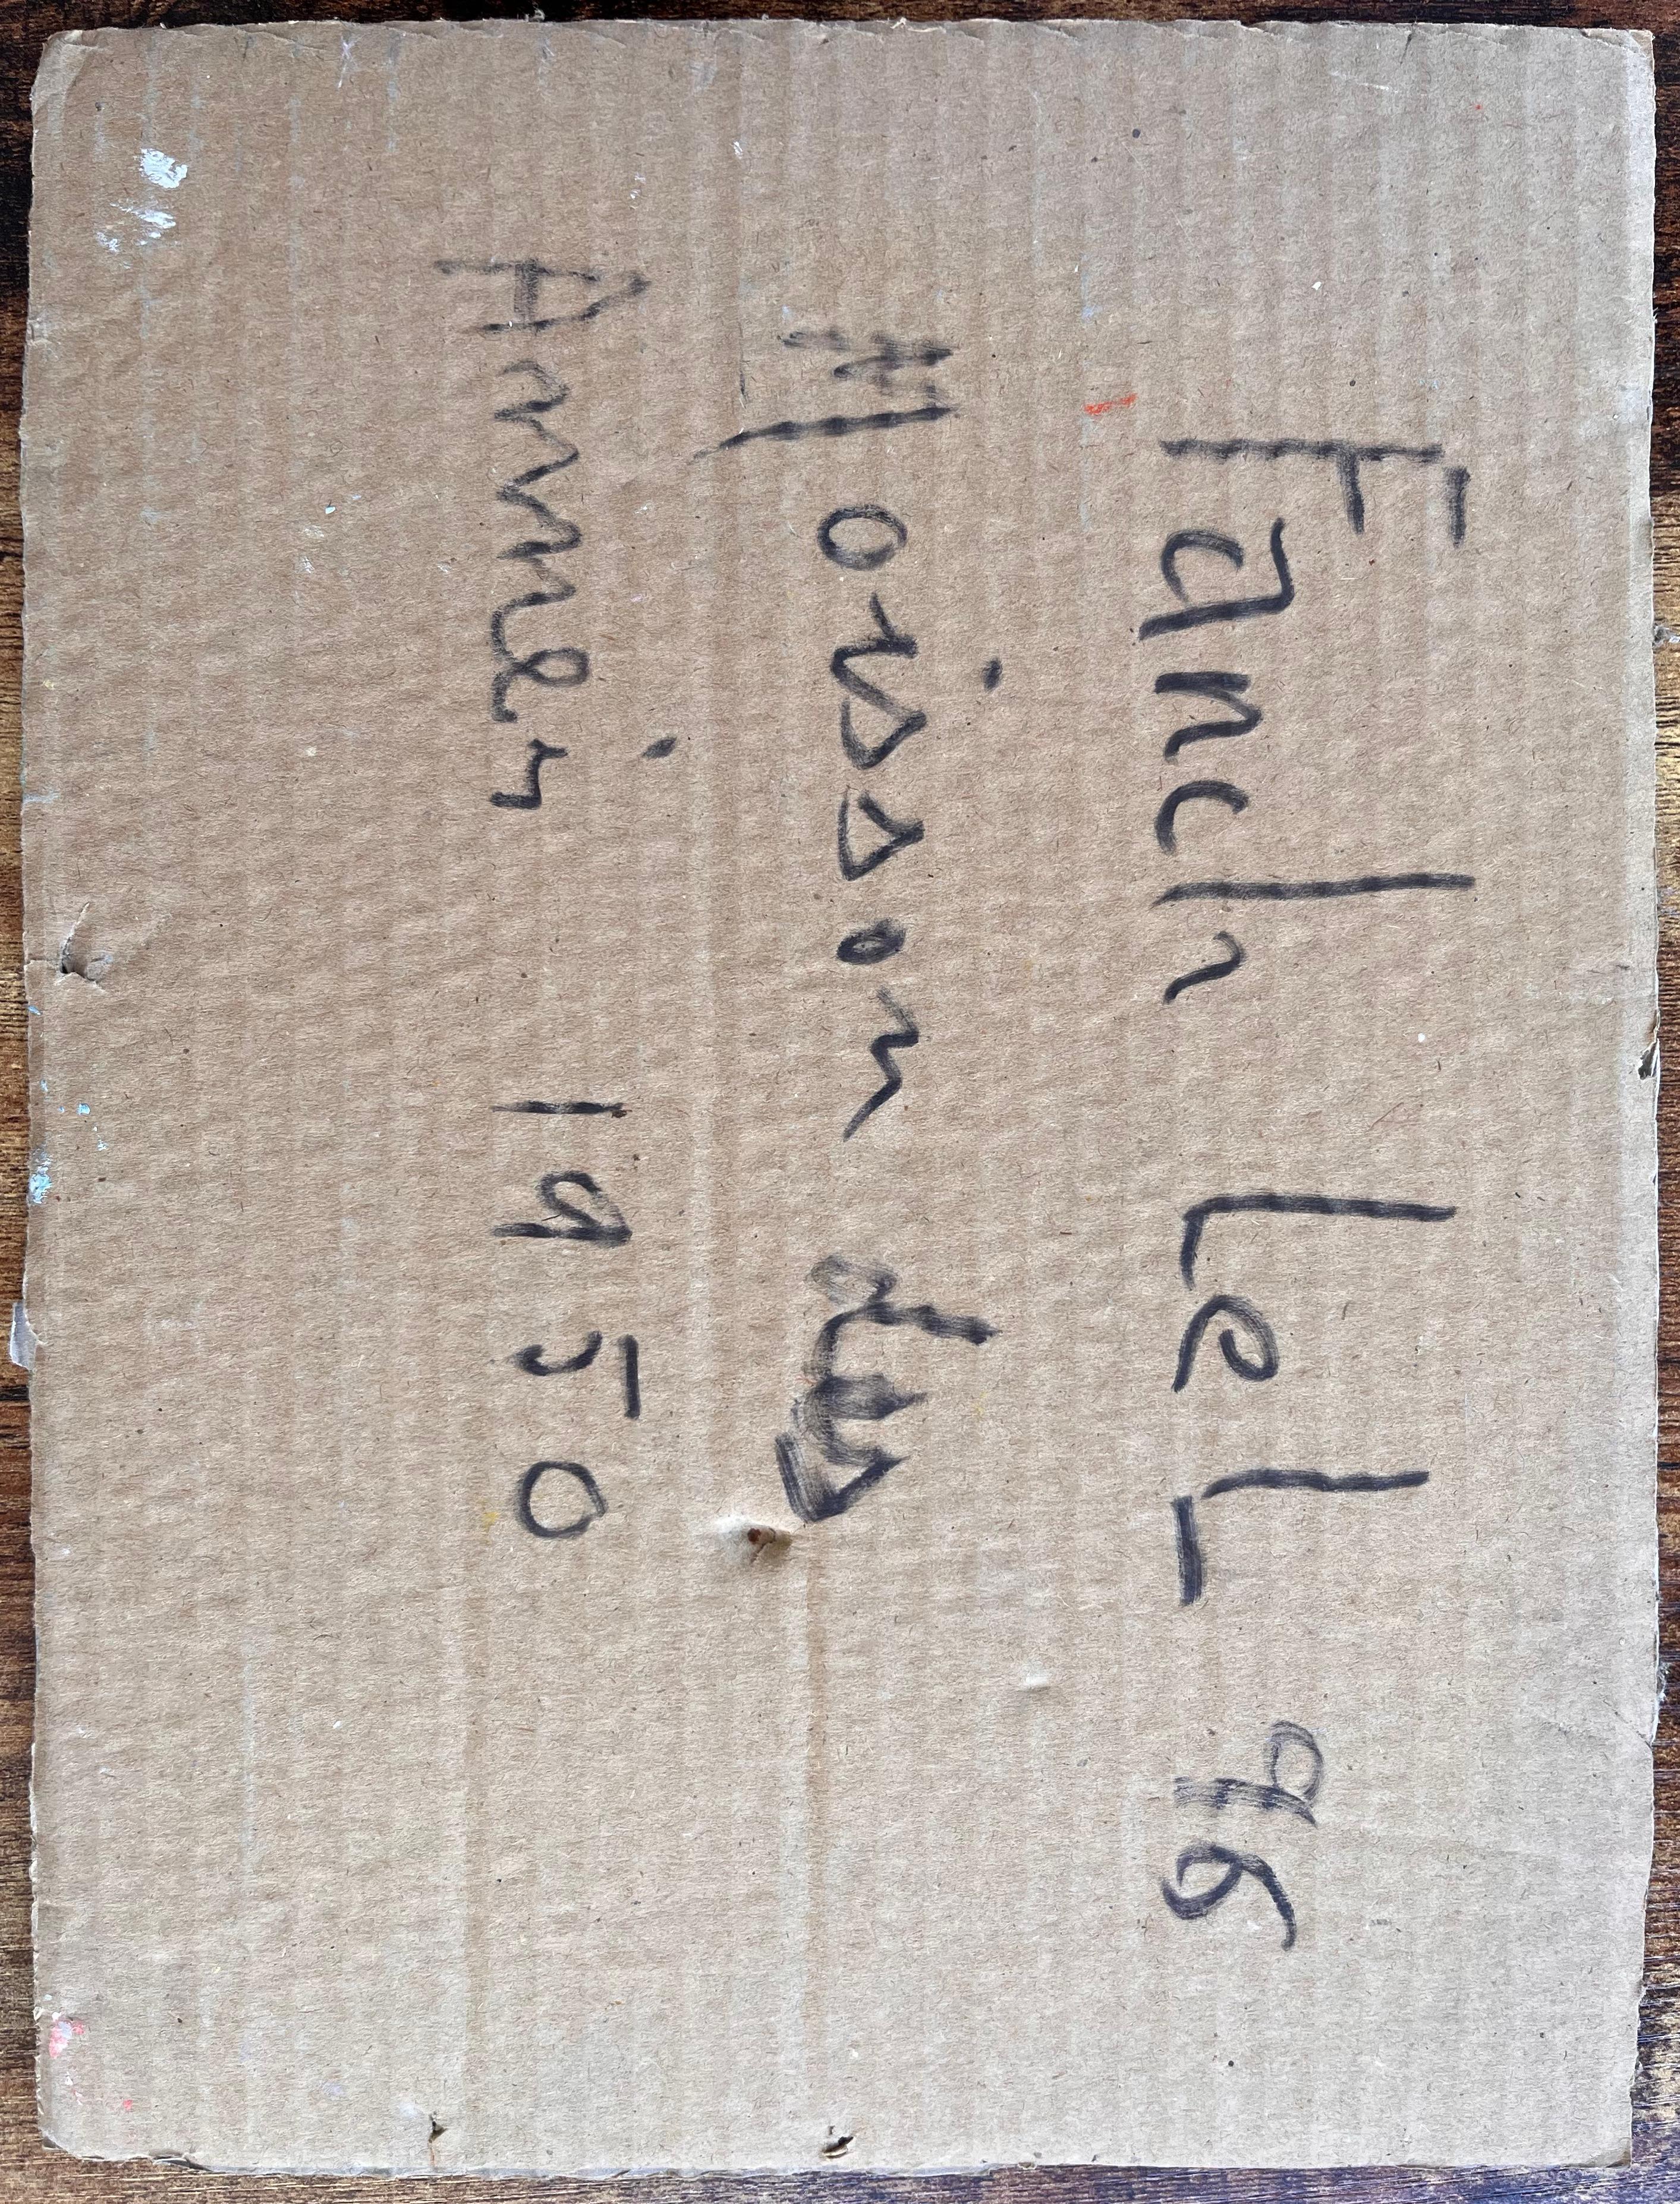 Fanch LeL 98
Moisson des
Années 1950